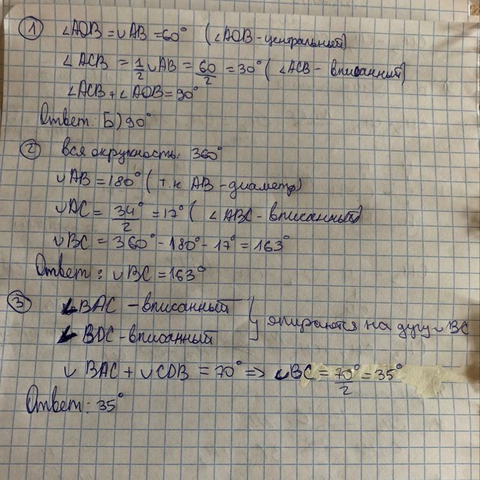 ① ∠AOB = ∪AB = 60° (∠AOB - центральный)
∠ACB = 1/2 ∪AB = 60/2 = 30° (∠ACB - вписанный)
∠ACB + ∠AOB = 90°
Ответ: Б) 90°
② вся окружность: 360°
∪AB = 180° (т.к AB - диаметр)
∪AC = 34°/2 = 17° (∠ABC - вписанный)
∪BC = 360° - 180° - 17° = 163°
Ответ: ∪BC = 163°
③ ∠BAC - вписанный
∠BDC - вписанный } опираются на дугу ∪BC
∪BAC + ∪CDB = 70° => ∪BC = 70°/2 = 35°
Ответ: 35°